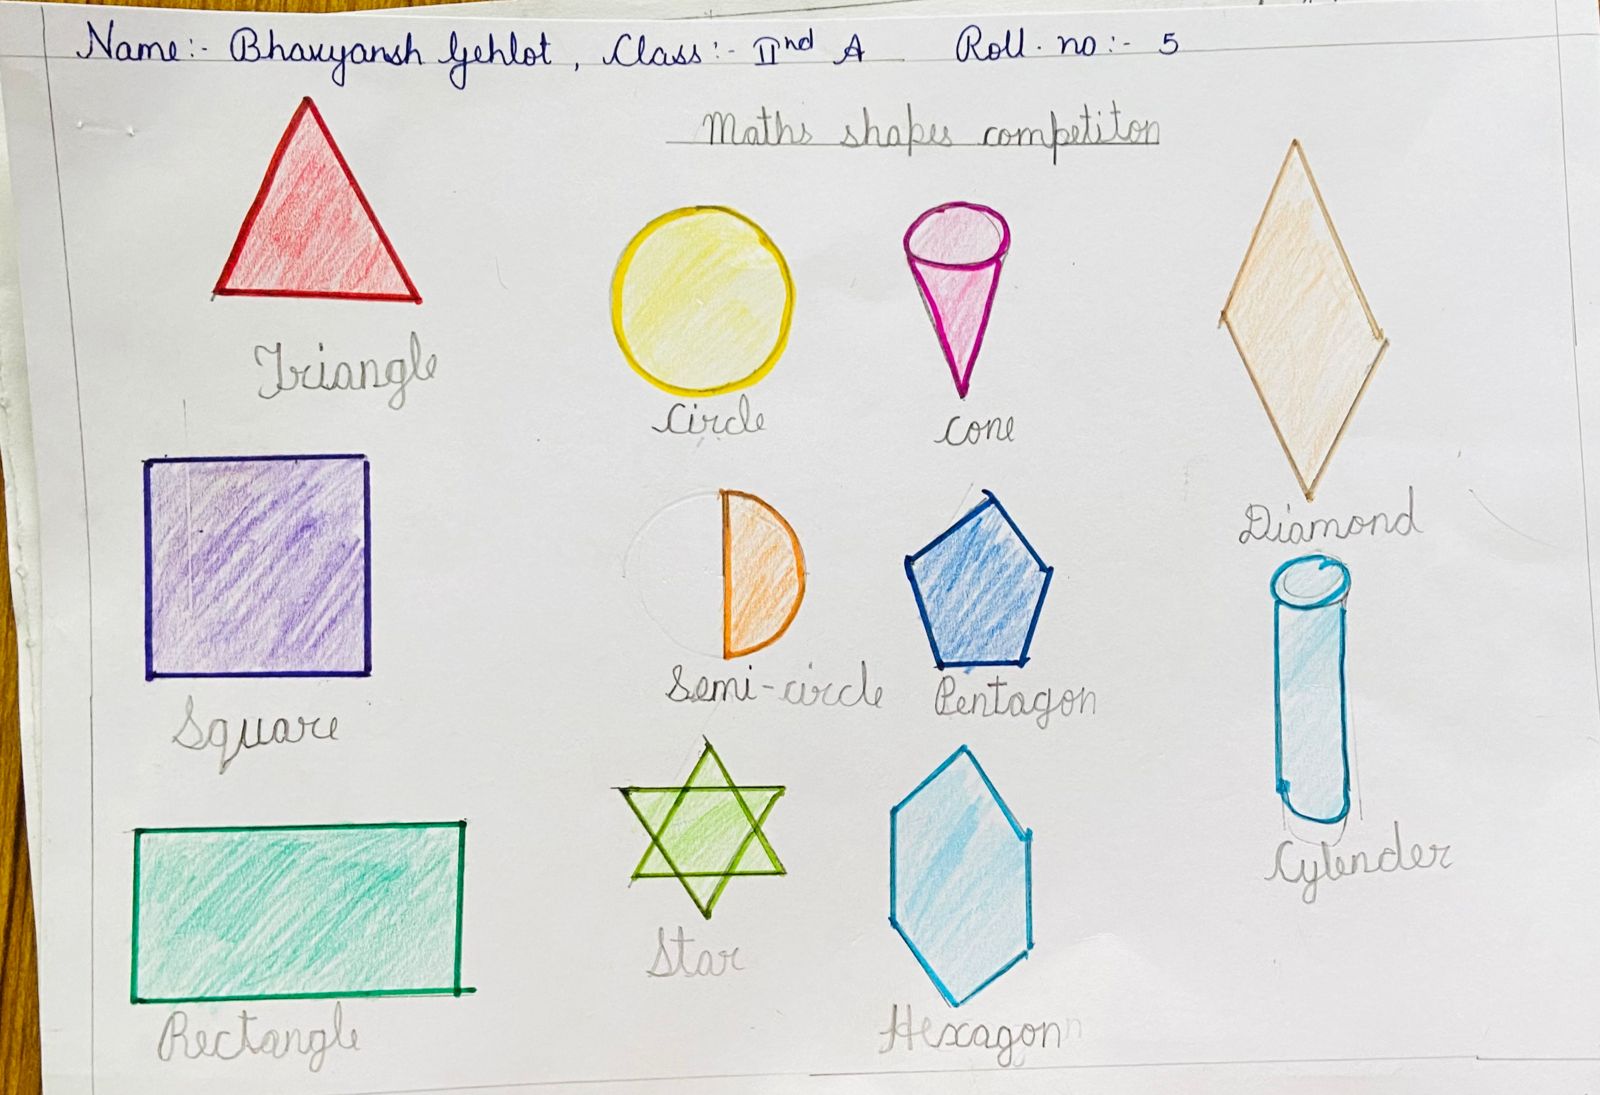 Name:- Bhavyansh Gehlot, Class:- IInd A Roll. no:- 5
Maths shapes competiton
Triangle
Circle
Cone
Diamond
Square
Semi-circle
Pentagon
Cylender
Rectangle
Star
Hexagon